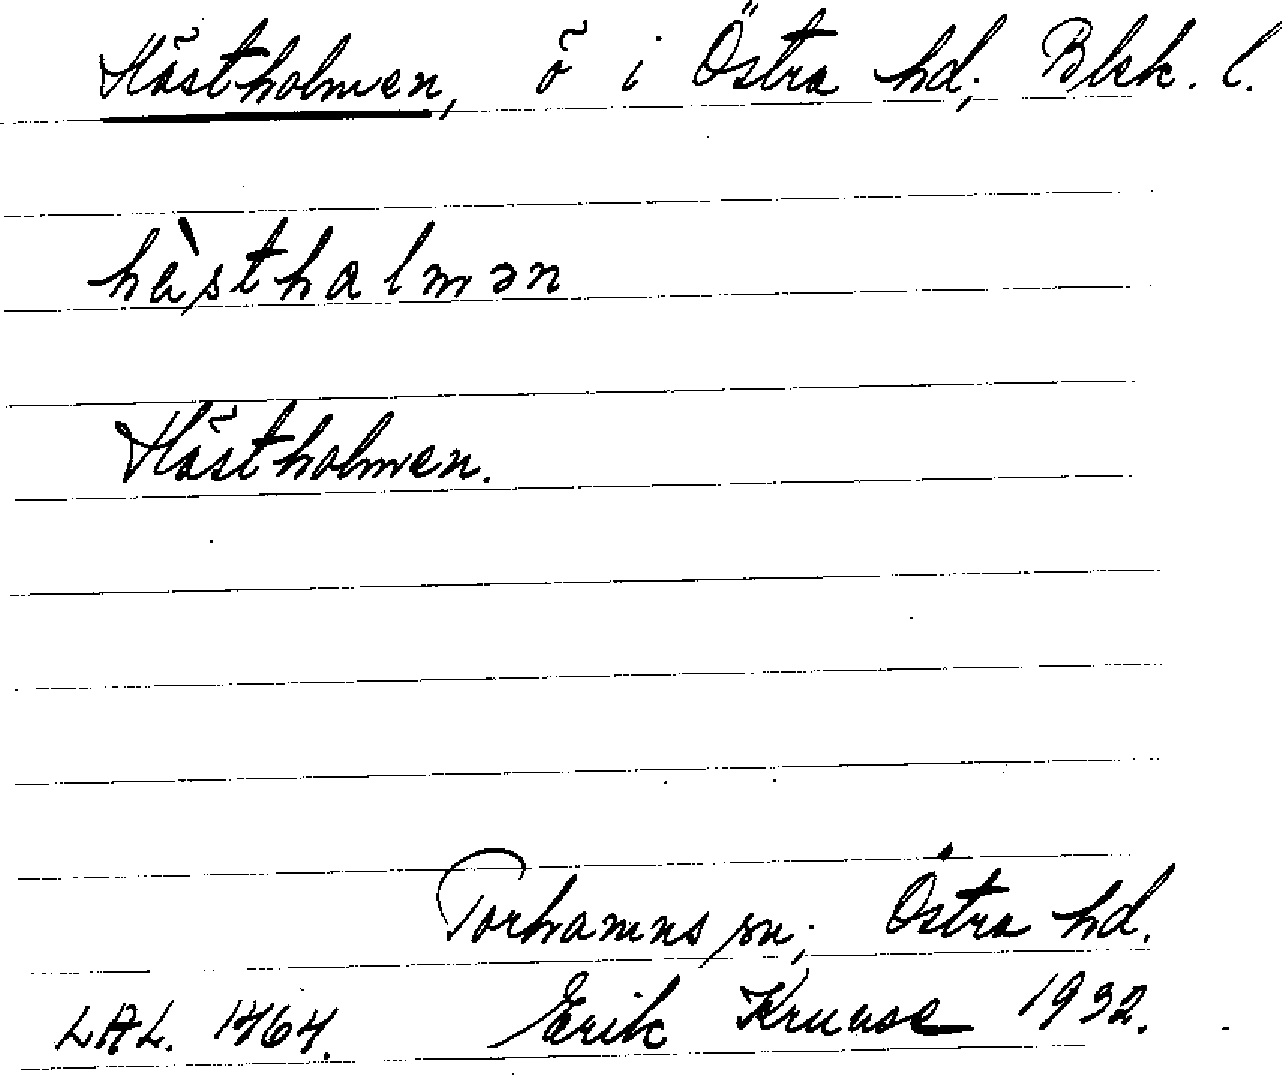 Hästholmen, ö i Östra hd; Blek. l.
hàstholmən
Hästholmen.
Torhamns sn; Östra hd.
LAL. 1464. Erik Kruuse 1932.